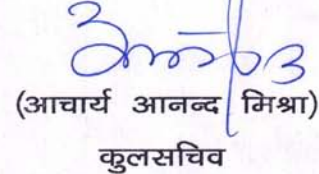 (आचार्य आनन्द मिश्रा)
कुलसचिव